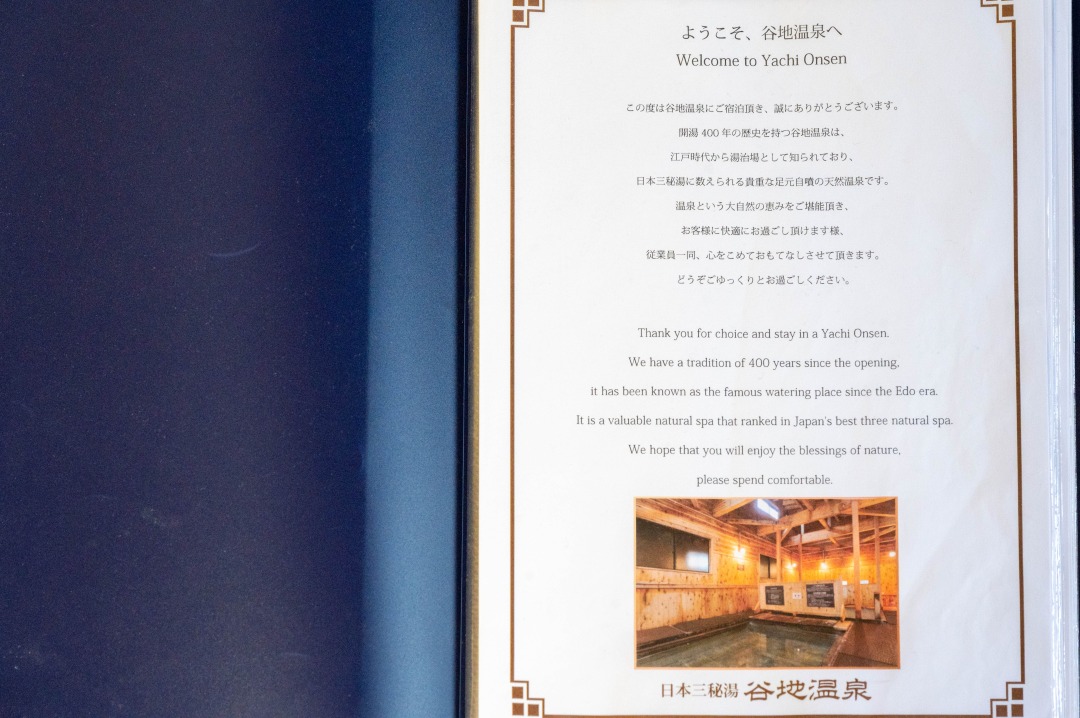 ようこそ、谷地温泉へ
Welcome to Yachi Onsen
この度は谷地温泉にご宿泊頂き、誠にありがとうございます。
開湯 400 年の歴史を持つ谷地温泉は、
江戸時代から湯治場として知られており、
日本三秘湯に数えられる貴重な足元自噴の天然温泉です。
温泉という大自然の恵みをご堪能頂き、
お客様に快適にお過ごし頂けます様、
従業員一同、心をこめておもてなしさせて頂きます。
どうぞごゆっくりとお過ごしください。
Thank you for choice and stay in a Yachi Onsen.
We have a tradition of 400 years since the opening,
it has been known as the famous watering place since the Edo era.
It is a valuable natural spa that ranked in Japan's best three natural spa.
We hope that you will enjoy the blessings of nature,
please spend comfortable.
日本三秘湯 谷地温泉